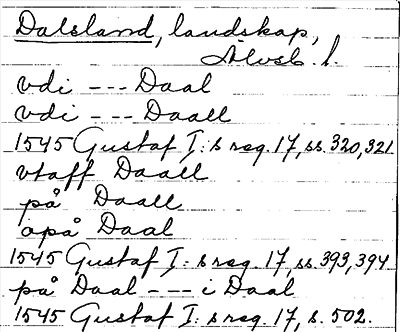 Dalsland, landskap,
Älvsb. l.
vdi --- Daal
vdi --- Daall
1545 Gustaf I:s reg. 17, ss. 320, 321
vtaff Daall
på Daall
opå Daal
1545 Gustaf I:s reg. 17, ss. 393, 394
på Daal --- i Daal
1545 Gustaf I:s reg. 17, s. 502.